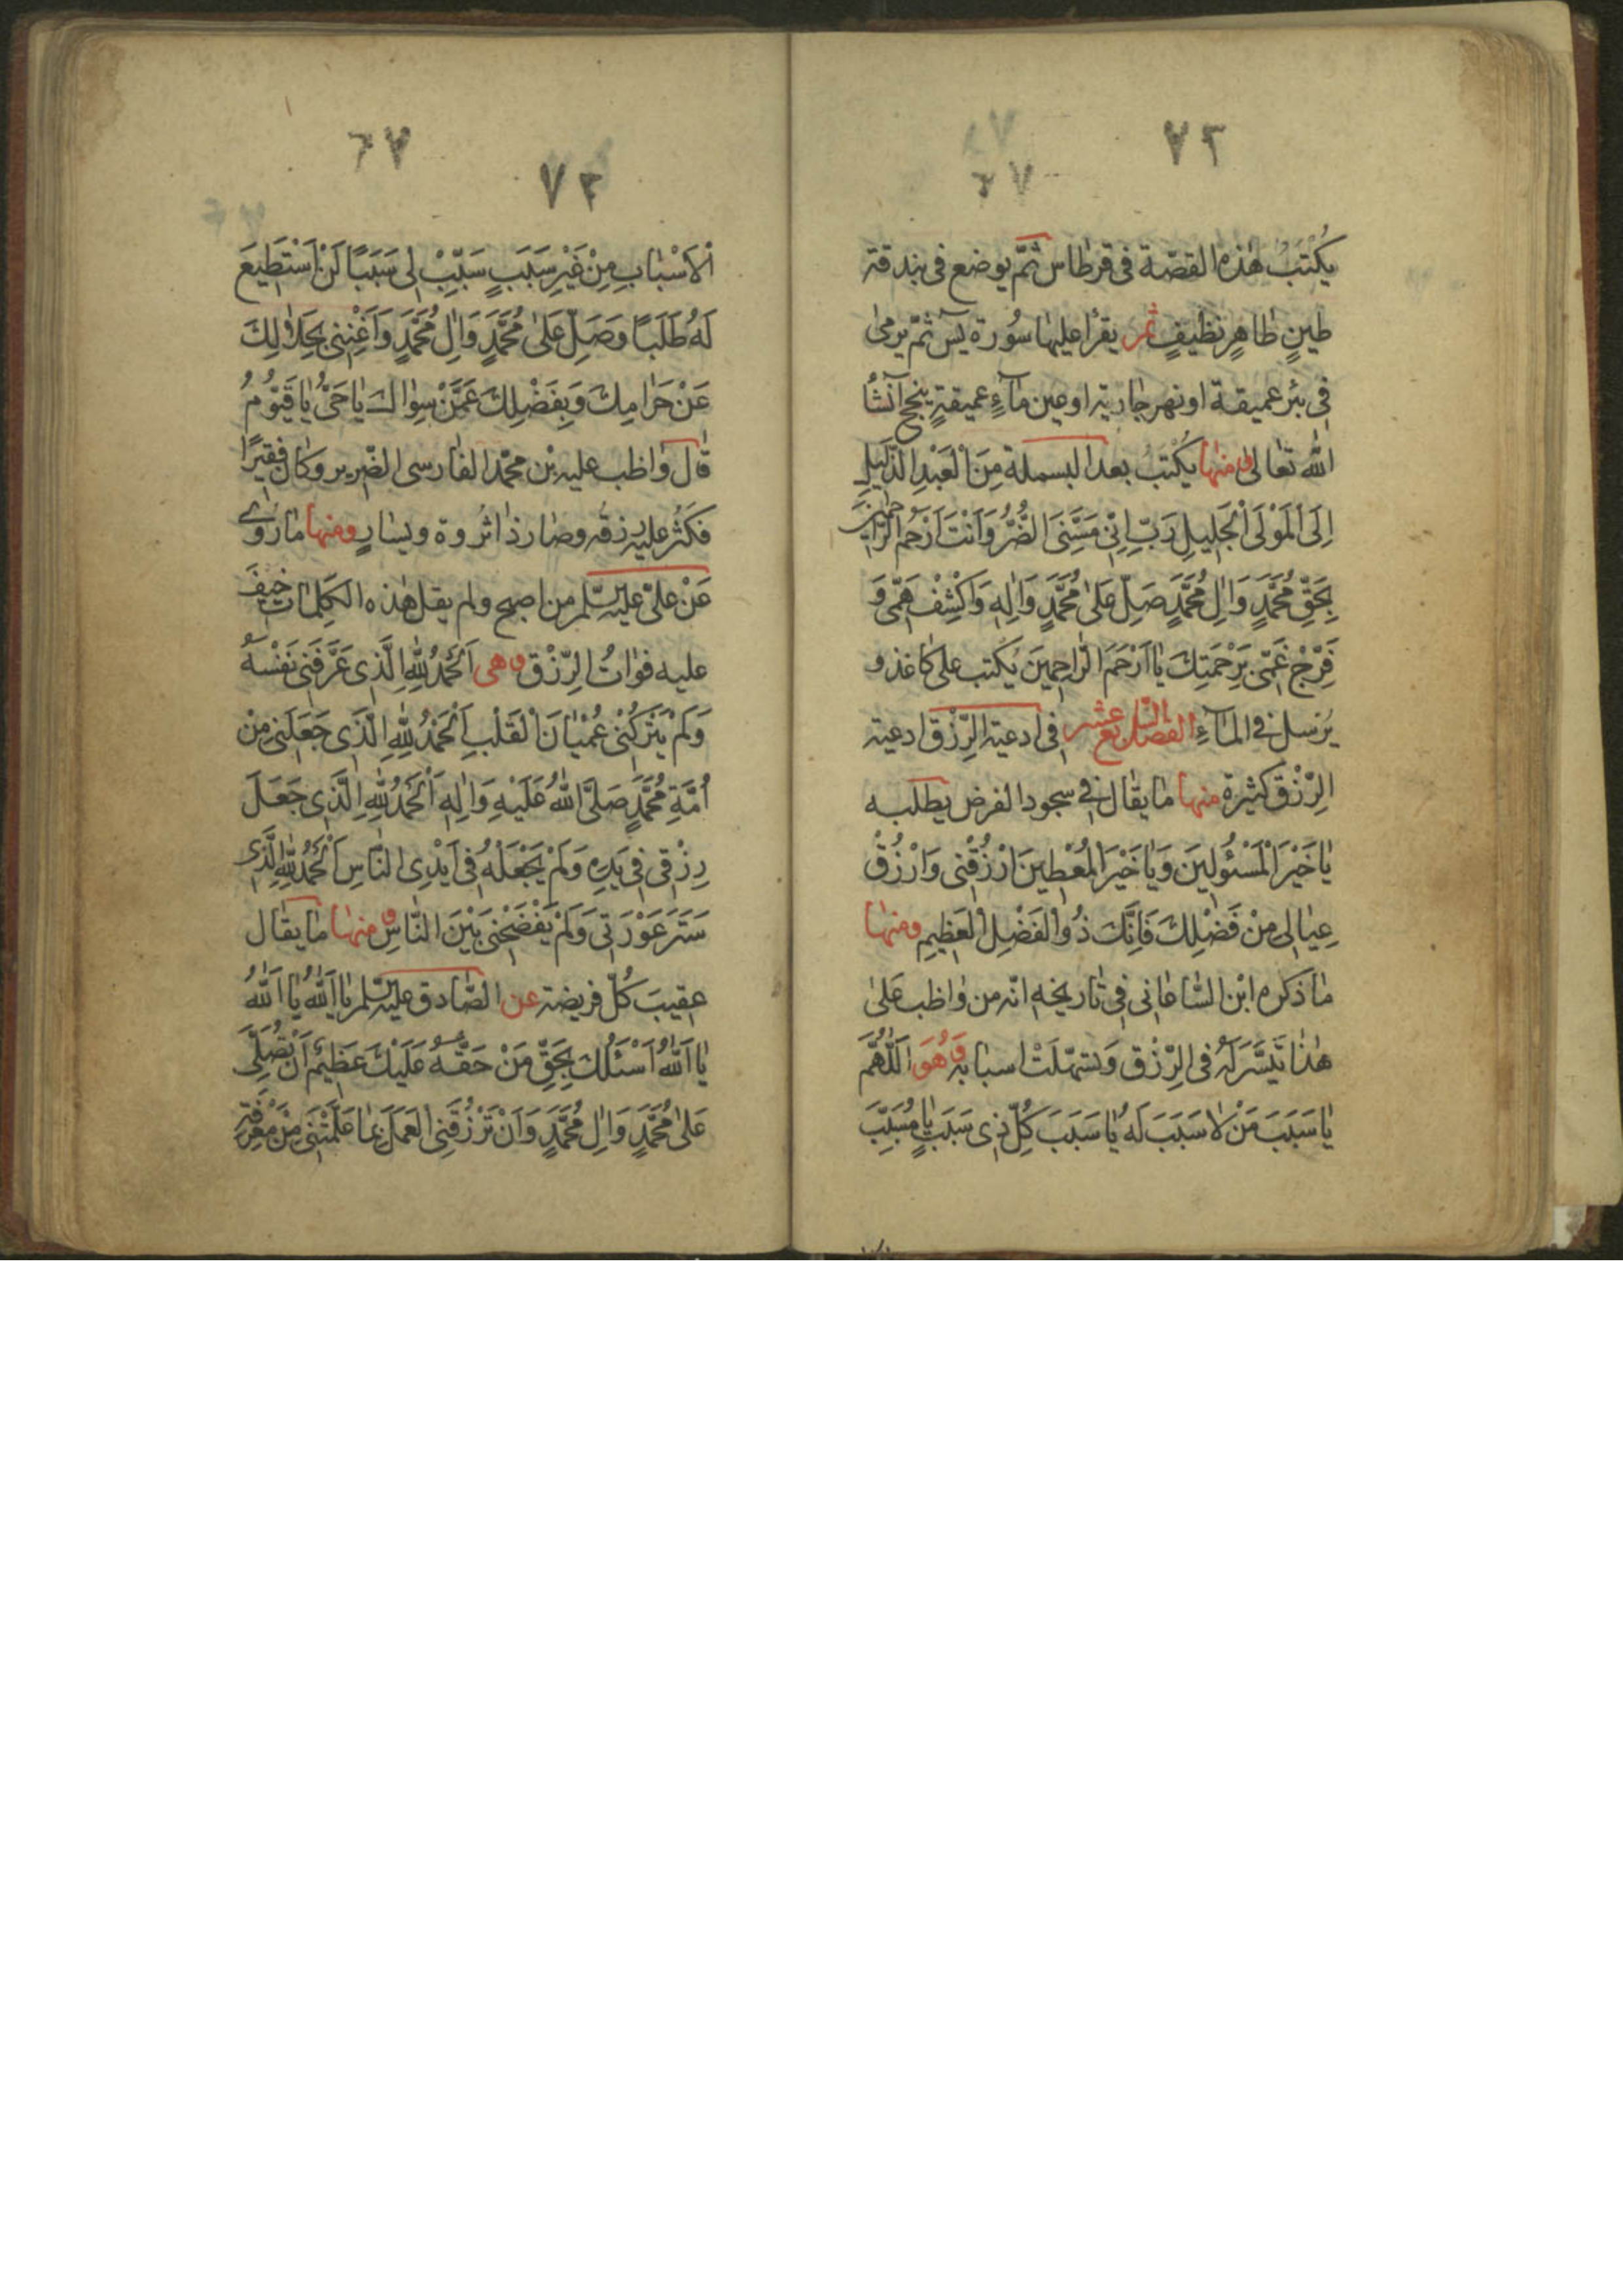 ٧٢
يُكْتَبُ هٰذه القصّة فى قرطاس ثمّ يوضع فى بندقة
طينٍ طاهرٍ نظيفٍ ثمر يقرأ عليها سُورة يٓس ثمّ يرمىٰ
فى بئر عميقة او نهر جارية او عين مآءٍ عميقةٍ ينجح آنشأ
اللّٰه تعالى ومنها يُكْتبُ بعد البسملة مِنَ الْعَبْدِ الذَّلِيلِ
اِلَى الْمَوْلَى الْجَلِيلِ رَبِّ اِنّى مَسَّنِىَ الضُّرُّ وَاَنْتَ اَرْحَمُ الرَّاحِمِينَ
بِحَقِّ مُحَمَّدٍ وَاٰلِ مُحَمَّدٍ صَلِّ عَلىٰ مُحَمَّدٍ وَاٰلِهِ وَاكْشِفْ هَمّى وَ
فَرِّجْ غَمّى بِرَحْمَتِكَ يٰا اَرْحَمَ الرّٰاحِمِينَ يُكتب على كاغذ و
يُرْسل فى المآءِ الفصل السّابع عشر فى ادعية الرِّزْق ادعية
الرِّزْق كثيرة منها مٰا يقٰال فى سجود الفرض يطلب به
يٰا خَيْرَ الْمَسْئُولِينَ وَيٰا خَيْرَ الْمُعْطِينَ اُرْزُقْنى وَارْزُقْ
عِيٰالى مِنْ فَضْلِكَ فَاِنَّكَ ذُو الْفَضْلِ الْعَظِيمِ ومنها
مٰا ذكره ابْن الشّٰاغٰانى فى تٰاريخه انّه من وٰاظب عَلىٰ
هٰذٰا تَيَسَّرَ لَهُ فى الرِّزْق وَتسهّلَتْ اسبابه وَهُوَ اَللّٰهُمَّ
يٰا سَبَبَ مَنْ لٰا سَبَبَ لَهُ يٰا سَبَبَ كُلِّ ذِى سَبَبٍ يٰا مُسَبِّبَ
٧٢
الْاَسْبٰابِ مِنْ غَيْرِ سَبَبٍ سَبِّبْ لى سَبَبًا لَنْ اَسْتَطِيعَ
لَهُ طَلَبًا وَصَلِّ عَلىٰ مُحَمَّدٍ وَاٰلِ مُحَمَّدٍ وَاَغْنِنى بِحَلٰالِكَ
عَنْ حَرٰامِكَ وَبِفَضْلِكَ عَمَّنْ سِوٰاكَ يٰا حَىُّ يٰا قَيُّومُ
قٰال وٰاظب عليه بْن محمّد الفٰارسى الضّرير وكٰان فقيرًا
فكثُر عليه رزقه وصٰار ذٰا ثروة ويسٰارٍ ومنها مٰا رُوى
عَنْ علىّ عليه السّلم من اصبح ولم يقل هٰذه الكلمٰات خيفَ
عليه فوٰاتُ الرِّزْق وهى اَلْحَمْدُ لِلّٰهِ الَّذِى عَرَّفَنى نَفْسَهُ
وَلَمْ يَتْرُكْنى عُمْيٰانَ الْقَلْبِ اَلْحَمْدُ لِلّٰهِ الَّذِى جَعَلَنى مِنْ
اُمَّةِ مُحَمَّدٍ صَلَّى اللّٰهُ عَلَيْهِ وَاٰلِهِ اَلْحَمْدُ لِلّٰهِ الَّذِى جَعَلَ
رِزْقى فى يَدِهِ وَلَمْ يَجْعَلْهُ فى اَيْدِى النّٰاسِ اَلْحَمْدُ لِلّٰهِ الَّذِى
سَتَرَ عَوْرَتى وَلَمْ يَفْضَحْنى بَيْنَ النّٰاسِ ومنهٰا مٰا يقٰال
عقيبَ كُلّ فريضة عن الصّٰادق عليه السّلم يٰا اَللّٰهُ يٰا اَللّٰهُ
يٰا اَللّٰهُ اَسْئَلُكَ بِحَقِّ مَنْ حَقُّهُ عَلَيْكَ عَظِيمٌ اَنْ تُصَلِّىَ
عَلىٰ مُحَمَّدٍ وَاٰلِ مُحَمَّدٍ وَاَنْ تَرْزُقَنى الْعَمَلَ بِمٰا عَلَّمْتَنى مِنْ مَعْرِفَةِ